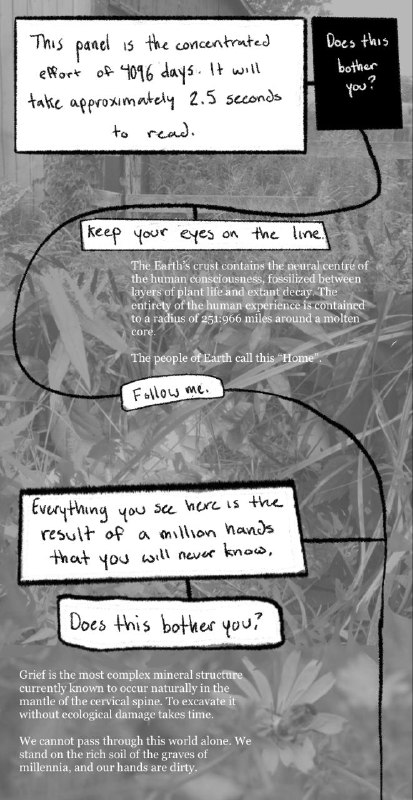 This panel is the concentrated
effort of 4096 days. It will
take approximately 2.5 seconds
to read.
Does this
bother
you?
Keep your eyes on the line.
The Earth's crust contains the neural centre of
the human consciousness, fossilized between
layers of plant life and extant decay. The
entirety of the human experience is contained
to a radius of 251.966 miles around a molten
core.
The people of Earth call this "Home".
Follow me.
Everything you see here is the
result of a million hands
that you will never know.
Does this bother you?
Grief is the most complex mineral structure
currently known to occur naturally in the
mantle of the cervical spine. To excavate it
without ecological damage takes time.
We cannot pass through this world alone. We
stand on the rich soil of the graves of
millennia, and our hands are dirty.